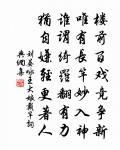 樓前百戲競爭新
唯有長竿妙入神
誰謂綺羅翻有力
猶自嫌輕更著人
劉晏詠王大娘戴竿詞